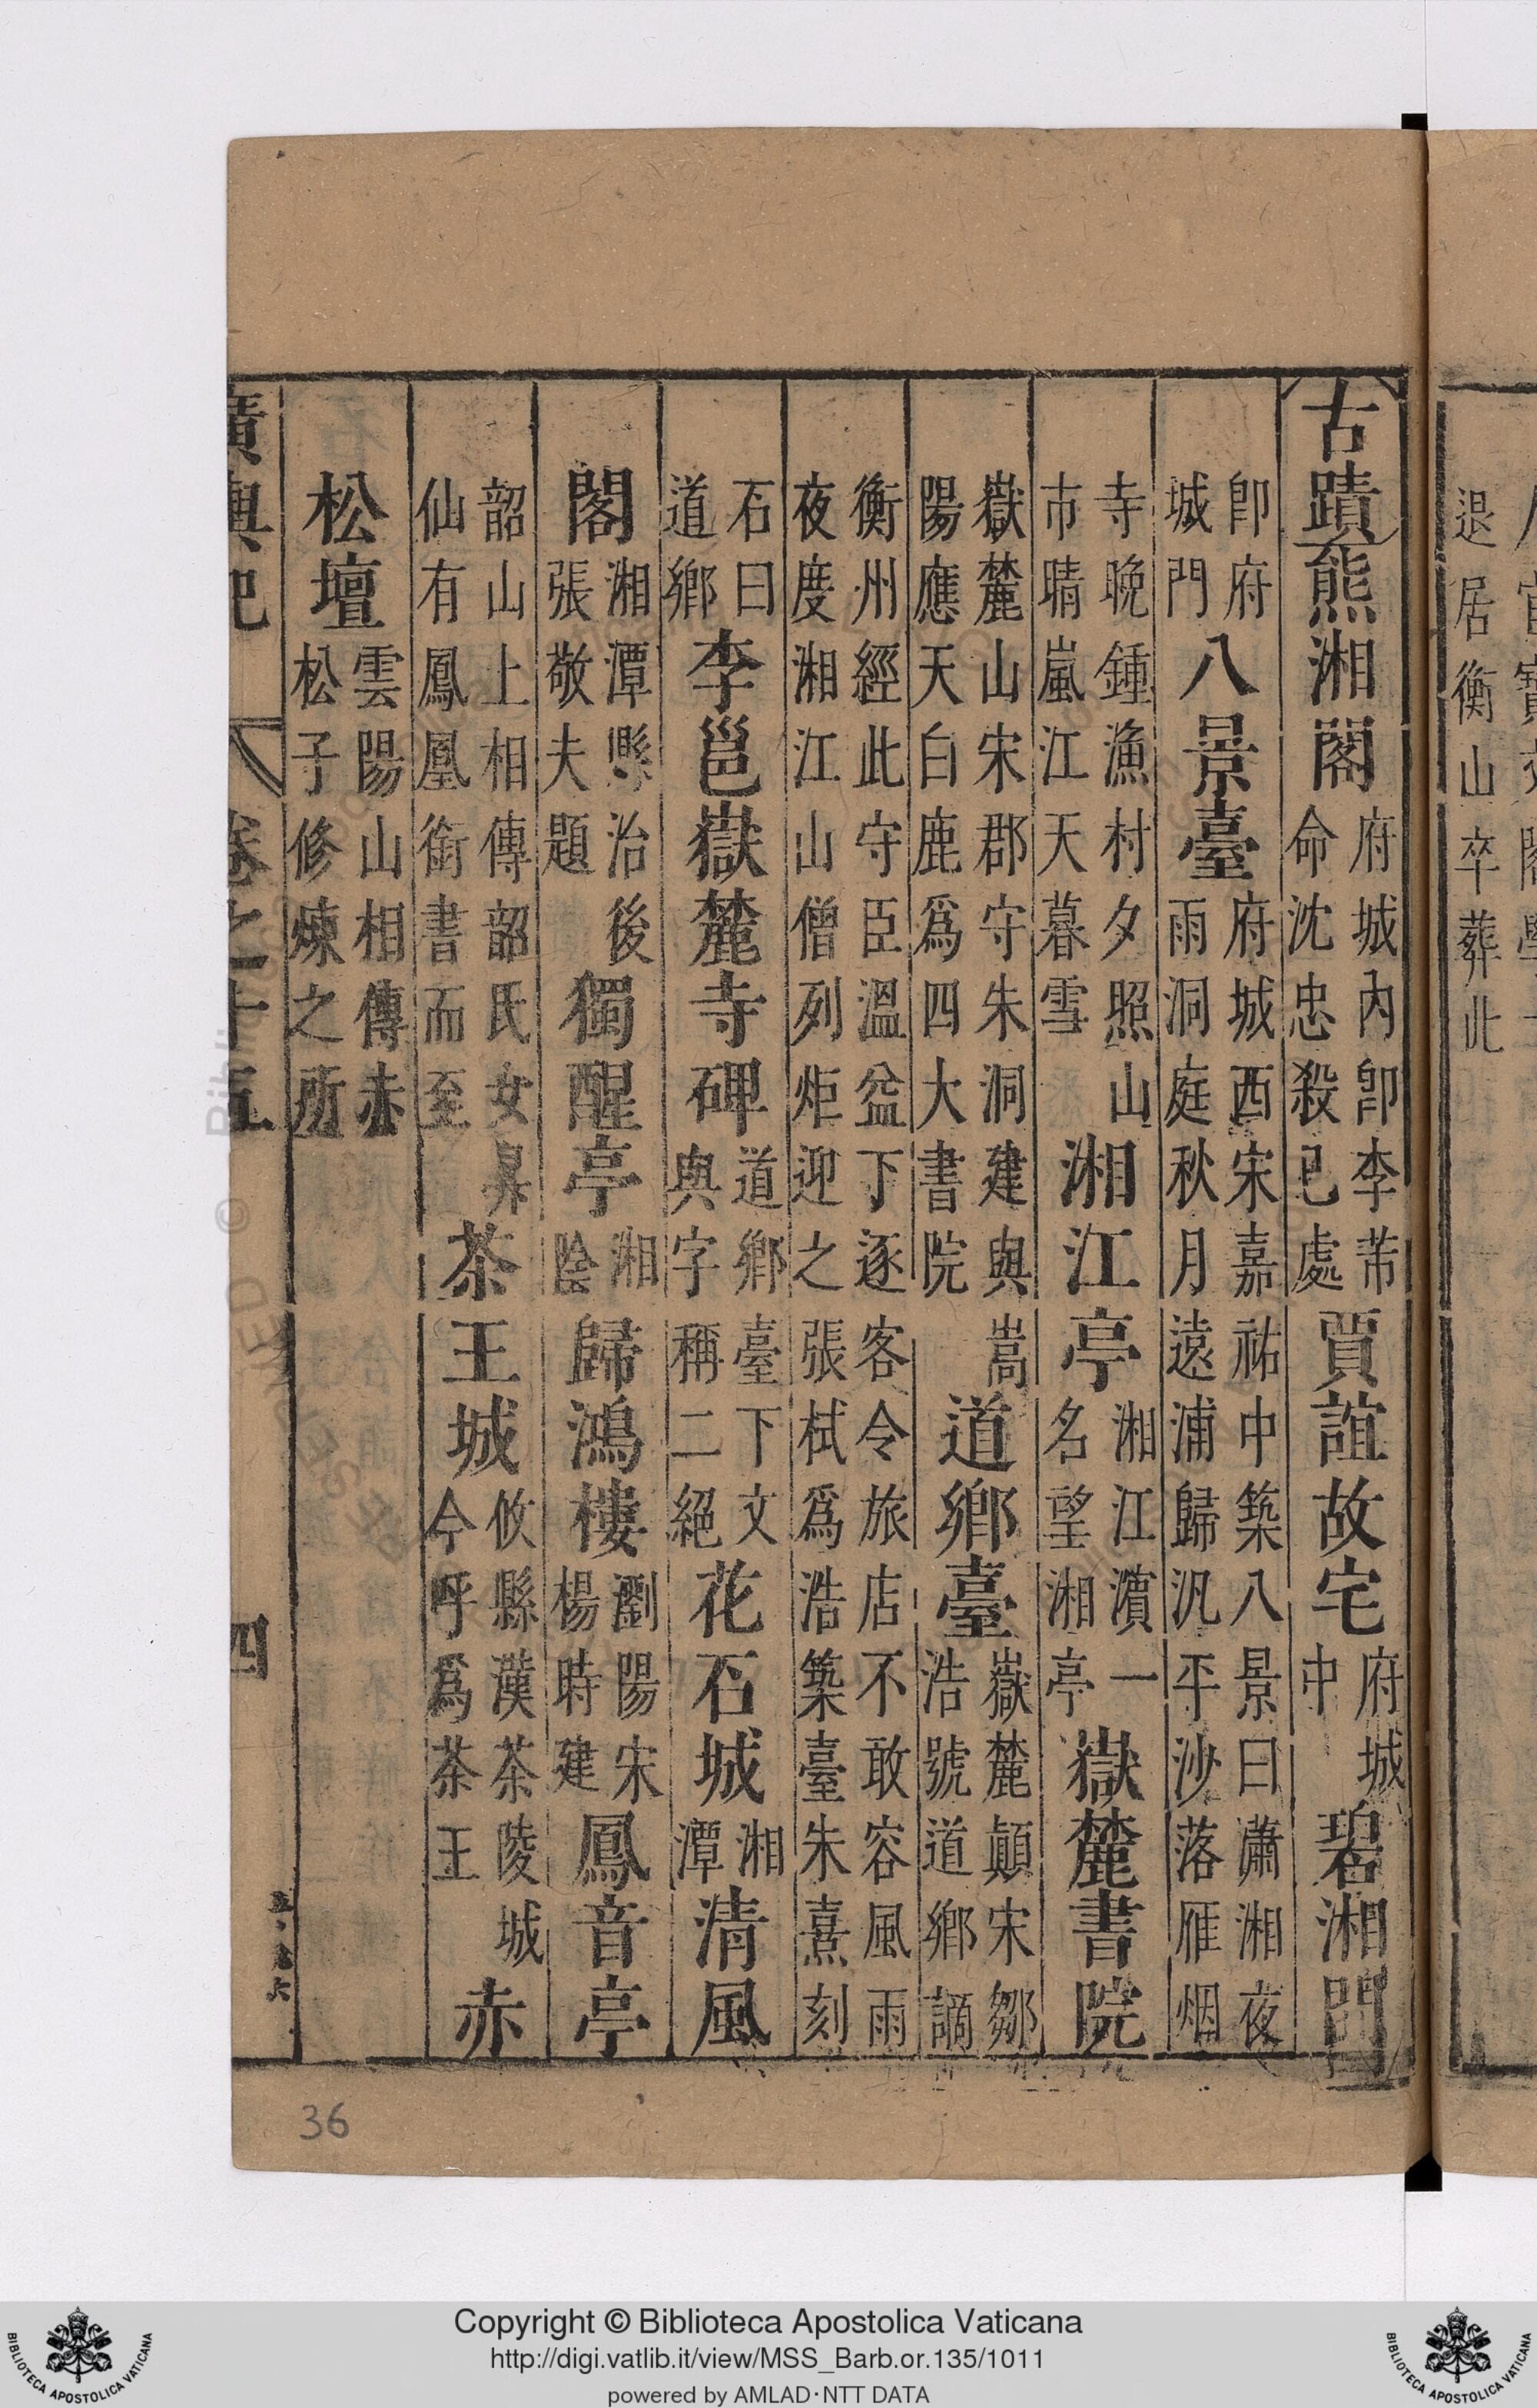 退居衡山卒葬此
古蹟熊湘閣府城內卽李芾命沈忠殺已處賈誼故宅府城中碧湘門
卽府城門八景臺府城西宋嘉祐中築八景曰瀟湘夜雨洞庭秋月遠浦歸汎平沙落雁烟
寺晚鍾漁村夕照山市晴嵐江天暮雪湘江亭湘江濵一名望湘亭嶽麓書院
嶽麓山宋郡守朱洞建與嵩陽應天白鹿爲四大書院道鄉臺嶽麓顛宋鄒浩號道鄉謫
衡州經此守臣溫益下逐客令旅店不敢容風雨夜度湘江山僧列炬迎之張栻爲浩築臺朱熹刻
石曰道鄉李邕嶽麓寺碑道鄉臺下文與字稱二絕花石城湘潭清風
閣湘潭縣治後張敬夫題獨醒亭湘陰歸鴻樓瀏陽宋楊時建鳳音亭
韶山上相傳韶氏女昇仙有鳳凰銜書而至茶王城攸縣漢茶陵城今呼爲茶王赤
松壇雲陽山相傳赤松子修煉之所
廣輿記 卷之十五 四
36
Copyright © Biblioteca Apostolica Vaticana
http://digi.vatlib.it/view/MSS_Barb.or.135/1011
powered by AMLAD·NTT DATA
BIBLIOTECA APOSTOLICA VATICANA
BIBLIOTECA APOSTOLICA VATICANA